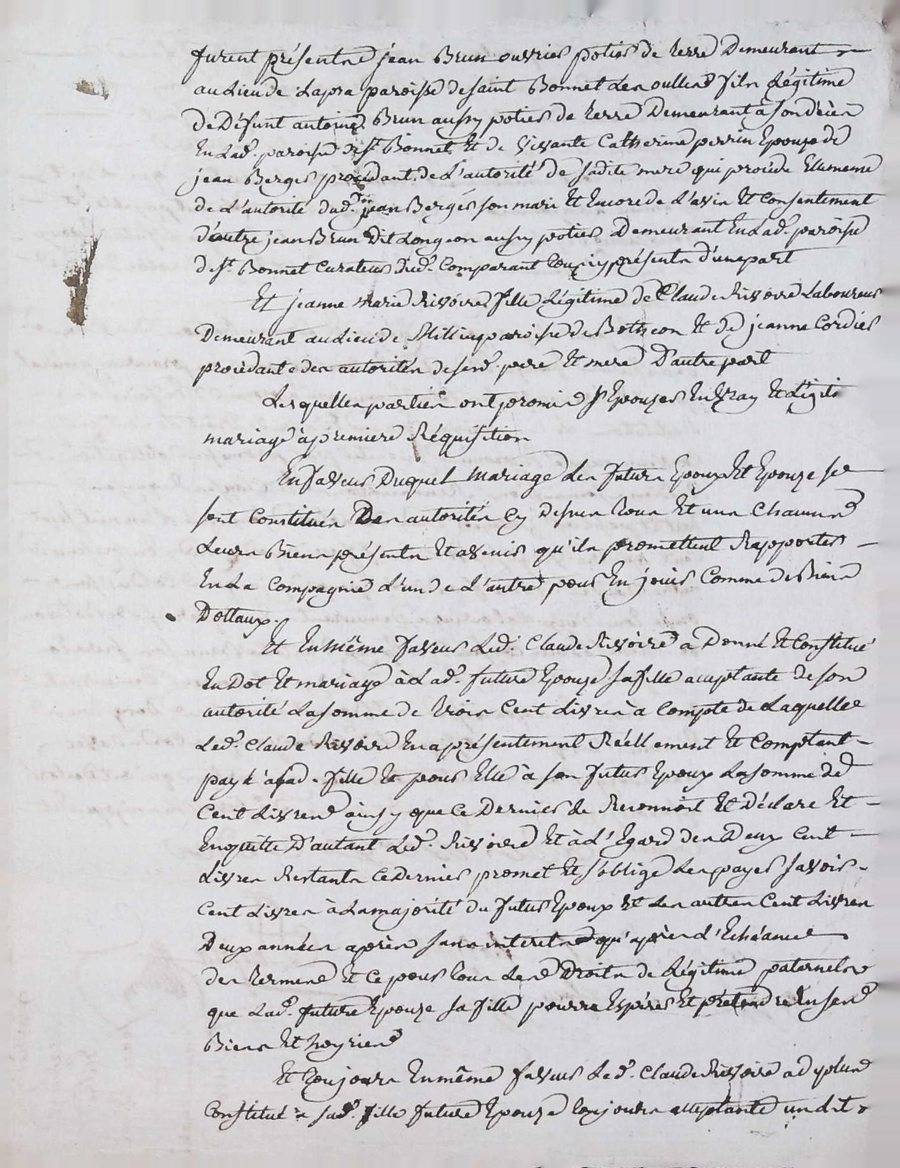 furent présents jean Brun ouvrier potier de terre Demeurant
au Lieu de Lapra paroisse de saint Bonnet Les oulles fils Légitime
de Défunt antoine Brun aussy potier de terre Demeurant à
En Lad. paroisse de St. Bonnet Et de vivante Catherine perrin Epouze de
jean Berger procédant de L'autorité de sadite mere qui procède Elle meme
de L'autorité dud. jean Berger son mari Et Encore de L'avis Et Consentement
d'autre jean Brun Dit Longeon aussy potier Demeurant En Lad. paroisse
de St. Bonnet Curateur dud. Comparant Tous icy présents d'une part
Et jeanne Marie Rivoire fille Légitime de Claude Rivoire Laboureur
Demeurant au Lieu de paroisse de Botheon Et de jeanne Cordier
procédante des autorités de sesd. pere Et mere D'autre part
Lesquelles parties ont promis s'Epouzer En vray Et Légite
mariage à premiere Réquisition
En faveur Duquel mariage Les futurs Epoux Et Epouze se
sont Constitués Des autorités Cy Dessus tous Et uns Chacuns
Leurs Biens présents Et avenir qu'ils promettent Rapporter
En La Compagnie L'un de L'autre pour En jouir Comme de Biens
Dottaux.
Et En même faveur Led. Claude Rivoire a Donné Et Constitué
En Dot Et mariage à Lad. future Epouze sa fille acceptante de son
autorité La somme de trois Cent Livres à Compte de Laquelle
Led. Claude Rivoire En a présentement Réellement Et Comptant
payé à sad. fille Et pour Elle à son futur Epoux La somme de
Cent Livres ainsy que ce Dernier Le Reconnoit Et Déclare Et
En quitte D'autant Led. Rivoire Et à L'Egard des Deux Cent
Livres Restants Ce Dernier promet Et s'oblige Les payer savoir
Cent Livres à La majorité du futur Epoux Et Les autres Cent Livres
Deux années après sans interets qu'après L'Echéance
des termes Et Ce pour tous Les Droits de Légitime paternels
que Lad. future Epouze sa fille pourra Espérer Et prétendre En ses
Biens Et hoyries
Et toujours En même faveur Led. Claude Rivoire a de plus
Constitué à sad. fille future Epouze toujours acceptante un dit